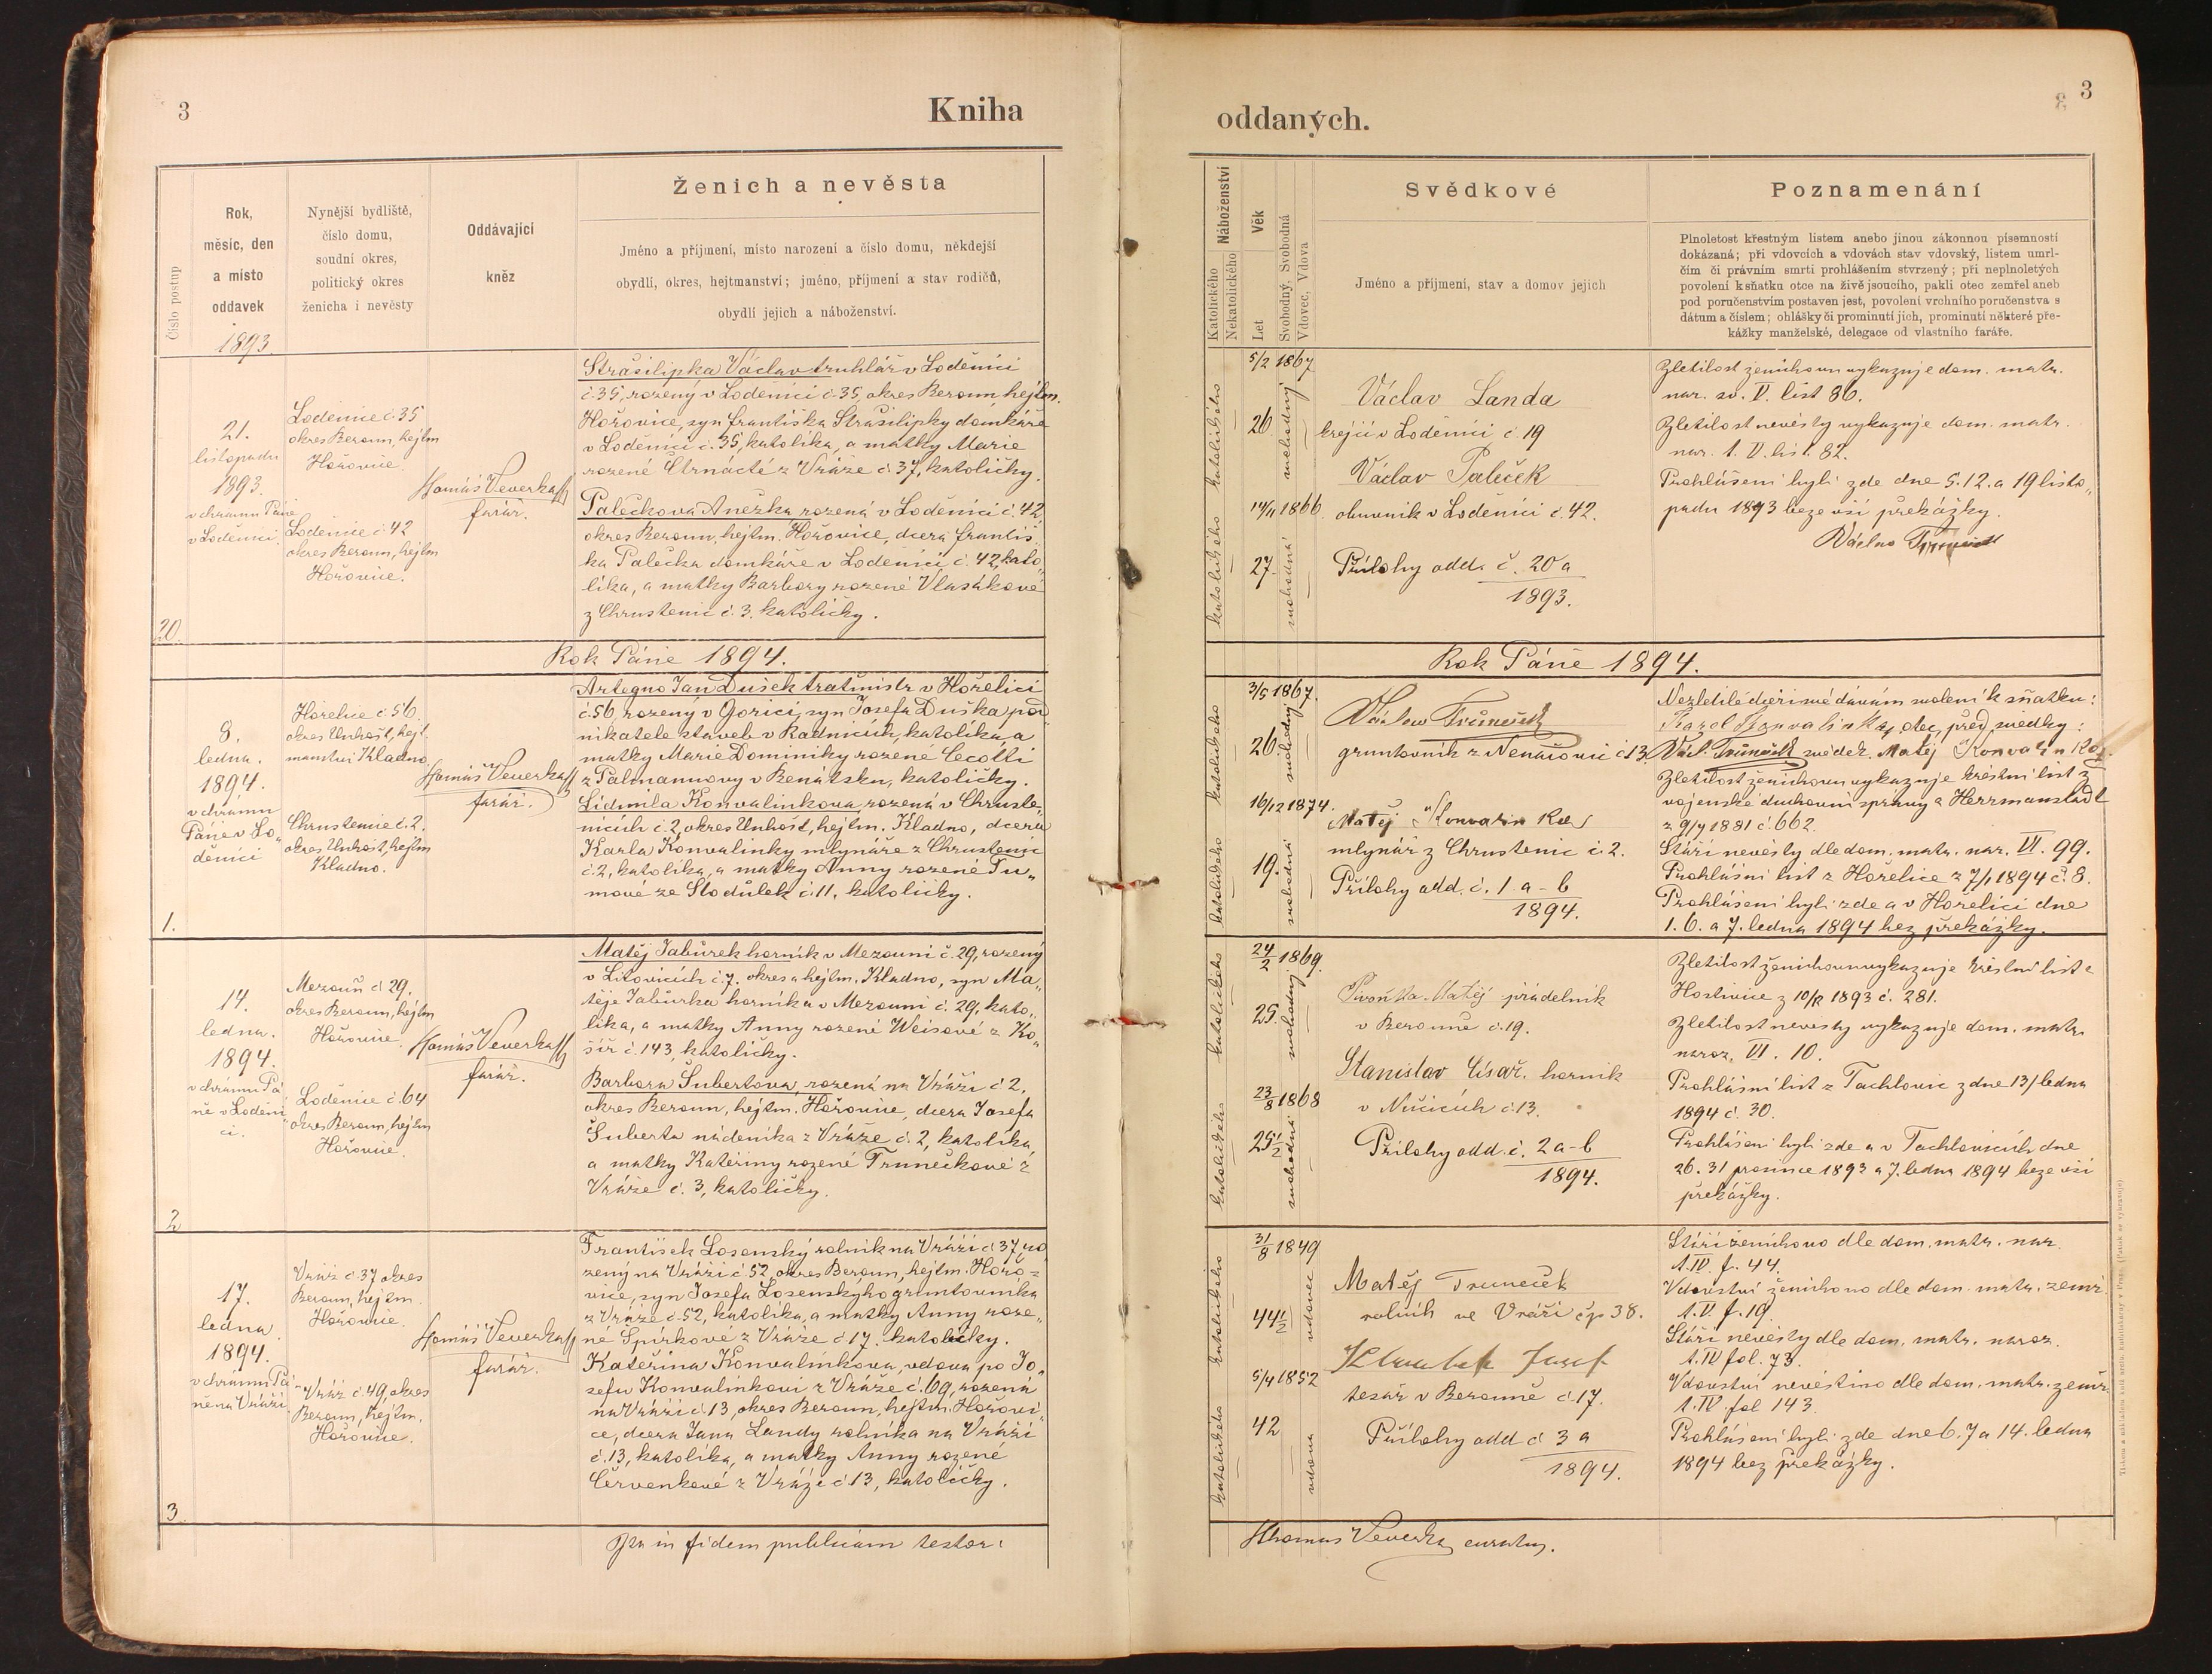 3
Kniha
Číslo postup
Rok,
měsíc, den
a místo
oddavek
1893.
Nynější bydliště,
číslo domu,
soudní okres,
politický okres
ženicha i nevěsty
Oddávající
kněz
Ženich a nevěsta
Jméno a příjmení, místo narození a číslo domu, někdejší
obydlí, okres, hejtmanství; jméno, příjmení a stav rodičů,
obydlí jejich a náboženství.
20.
21.
listopadu
1893.
v chrámu Páně
v Loděnici.
Loděnice č. 35
okres Beroun, hejtm
Hořovice.
Loděnice č. 42
okres Beroun, hejtm
Hořovice.
Tomáš Veverka
farář.
Strašilipka Václav truhlář v Loděnici
č. 35, rozený v Loděnici č. 35, okres Beroun, hejtm.
Hořovice, syn Františka Strašilipky domkáře
v Loděnici č. 35, katolíka, a matky Marie
rozené Čtrnácté z Vráže č. 37, katoličky.
Palečkova Anežka rozená v Loděnici č. 42,
okres Beroun, hejtm. Hořovice, dcera Františ
ka Palečka domkáře v Loděnici č. 42, kato„
líka, a matky Barbory rozené Vlasákové
z Chrustenic č. 3. katoličky.
Rok Páně 1894.
1.
8.
ledna.
1894.
v chrámu
Páně v Lo„
děnici
Hořelice č. 56.
okres Unhošť, hejt
manství Kladno
Chrustenice č. 2.
okres Unhošť, hejtm
Kladno.
Tomáš Veverka
farář.
Artegno Jan Dušek traťmistr v Hořelici
č. 56, rozený v Gorici, syn Josefa Duška pod
nikatele staveb v Radnicích, katolíka, a
matky Marie Dominiky rozené Cecotti
z Palmanuovy v Benátsku, katoličky.
Lidmila Konvalinkova, rozená v Chruste„
nicích č. 2, okres Unhošť, hejtm. Kladno, dcera
Karla Konvalinky mlynáře z Chrustenic
č. 2, katolíka, a matky Anny rozené Tu„
mové ze Stodůlek č. 11, katoličky.
2
14.
ledna.
1894.
v chrámu Pá
ně v Loděni„
ci.
Mezouň č. 29.
okres Beroun, hejtm
Hořovice.
Loděnice č. 64
okres Beroun, hejtm
Hořovice.
Tomáš Veverka
farář.
Matěj Jabůrek horník v Mezouni č. 29, rozený
v Litovicích č. 7. okres a hejtm. Kladno, syn Ma„
těje Jabůrka horníka v Mezouni č. 29, kato„
líka, a matky Anny rozené Weisové z Ko„
šíř č. 143, katoličky.
Barbora Šubertova, rozená na Vráži č. 2.
okres Beroun, hejtm. Hořovice, dcera Josefa
Šuberta nádeníka z Vráže č. 2, katolíka,
a matky Kateřiny rozené Trunečkové z
Vráže č. 3, katoličky.
3
17.
ledna
1894.
v chrámu Pá„
ně na Vráži.
Vráž č. 37 okres
Beroun, hejtm.
Hořovice.
Vráž č. 49, okres
Beroun, hejtm.
Hořovice.
Tomáš Veverka
farář.
František Losenský rolník na Vráži č. 37, ro
zený na Vráži č. 52, okres Beroun, hejtm. Hořo=
vice, syn Josefa Losenskýho gruntovníka
z Vráže č. 52, katolíka, a matky Anny roze„
né Spírkové z Vráže č. 17. katoličky.
Kateřina Konvalinkova, vdova po Jo„
sefu Konvalinkovi z Vráže č. 69, rozená
na Vráži č. 13, okres Beroun, hejtm. Hořovi„
ce, dcera Jana Landy rolníka na Vráži
č. 13, katolíka, a matky Anny rozené
Červenkové z Vráže č. 13, katoličky.
Ita in fidem publicam testor:
3
oddaných.
Náboženství
Katolického
Nekatolického
Věk
Let
Svobodný, Svobodná
Vdovec, Vdova
Svědkové
Jméno a příjmení, stav a domov jejich
Poznamenání
Plnoletost křestným listem anebo jinou zákonnou písemností
dokázaná; při vdovcích a vdovách stav vdovský, listem umrl-
čím či právním smrti prohlášením stvrzený; při neplnoletých
povolení k sňatku otce na živě jsoucího, pakli otec zemřel aneb
pod poručenstvím postaven jest, povolení vrchního poručenstva s
dátum a číslem; ohlášky či prominutí jich, prominutí některé pře-
kážky manželské, delegace od vlastního faráře.
katolického
katolického
5/2 1867
26
svobodný
14/11 1866.
27.
svobodná
Václav Landa
krejčí v Loděnici č. 19
Václav Paleček
obuvník v Loděnici č. 42.
Přílohy odd. č. 20 a
1893.
Zletilost ženichovu vykazuje dom. matr.
nar. sv. V. list 86.
Zletilost nevěsty vykazuje dom. matr.
nar. t. V. list. 82.
Prohlášeni byli zde dne 5. 12. a 19 listo„
padu 1893 beze vší překážky.
Rok Páně 1894.
katolického
katolického
3/5 1867.
26.
svobodný
16/12 1874.
19.
svobodná
Václav Truneček
gruntovník z Nenačovic č. 13.
Matěj
mlynář z Chrustenic č. 2.
Přílohy odd. č. 1 a-b
1894.
Nezletilé dceři mé dávám svolení k sňatku:
Karel Konvalinka, otec, před svědky:
Václ. Truneček svědek. Matěj
Zletilost ženichovu vykazuje křestní list z
vojenské duchovní správy a Herrmanstadt
z 9/4 1881 č. 662.
Stáří nevěsty dle dom. matr. nar. VI. 99.
Prohlášní list z Hořelice z 7/1 1894 č. 8.
Prohlášeni byli zde a v Hořelici dne
1. 6. a 7. ledna 1894 bez překážky.
katolického
katolického
24/2 1869.
25.
svobodný
23/8 1868
25 1/2
svobodná
Pivoňka Matěj přádelník
v Berouně č. 19.
Stanislav Císař. horník
v Nučicích č. 13.
Přílohy odd. č. 2 a-b
1894.
Zletilost ženichovu vykazuje křestní list z
Hostivice z 10/12 1893 č. 281.
Zletilost nevěsty vykazuje dom. matr.
naroz. VI. 10.
Prohlášní list z Tachlovic z dne 13/ ledna
1894 č. 30.
Prohlášeni byli zde a v Tachlovicích dne
26. 31 prosince 1893 a 7. ledna 1894 beze vší
překážky.
katolického
katolického
31/8 1849
44 1/2
vdovec
5/4 1852
42
vdova
Matěj Truneček
rolník ve Vráži čp 38.
Josef
tesař v Berouně č. 17.
Přílohy odd č 3 a
1894.
Stáří ženichovo dle dom. matr. nar.
t. IV. f. 44.
Vdovství ženichovo dle dom. matr. zemř.
t. V. f. 19.
Stáří nevěsty dle dom. matr. naroz.
t. IV fol. 73.
Vdovství nevěstino dle dom. matr. zemř.
t. IV. fol 143.
Prohlášeni byli zde dne 6. 7 a 14. ledna
1894 bez překážky.
Thomas Veverka, curatus.